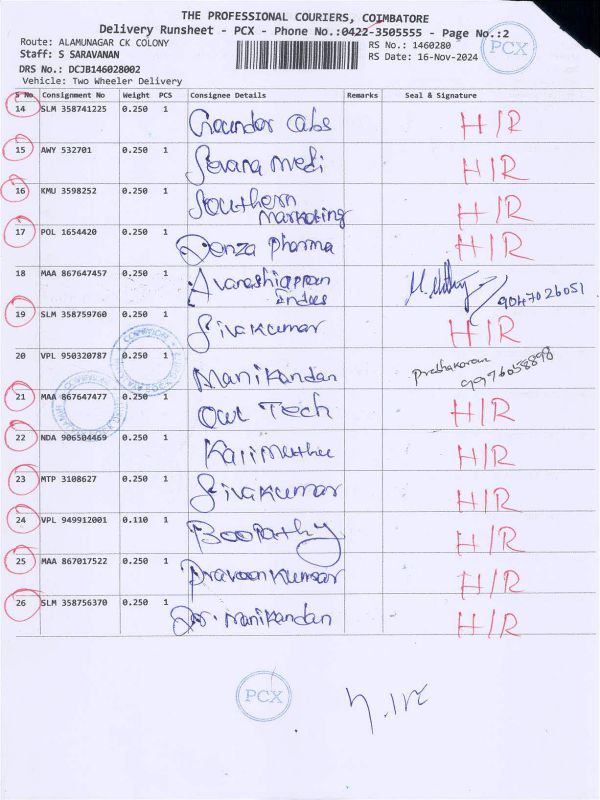 THE PROFESSIONAL COURIERS, COIMBATORE
Delivery Runsheet - PCX - Phone No.:0422-3505555 - Page No.:2
Route: ALAMUNAGAR CK COLONY RS No.: 1460280 PCX
Staff: S SARAVANAN RS Date: 16-Nov-2024
DRS No.: DCJB146028002
Vehicle: Two Wheeler Delivery
S No Consignment No Weight PCS Consignee Details Remarks Seal & Signature
14 SLM 358741225 0.250 1 Gounder Cabs H/R
15 AWY 532701 0.250 1 Sevana Medi H/R
16 KMU 3598252 0.250 1 Southern H/R
Marketing
17 POL 1654420 0.250 1 Denza Pharma H/R
18 MAA 867647457 0.250 1 Avanashiappan
Indus 9047026051
19 SLM 358759760 0.250 1 Sivakumar H/R
20 VPL 950320787 0.250 1 Manikandan Prabhakaran
9976058898
21 MAA 867647477 0.250 1 Owl Tech H/R
22 NDA 906504469 0.250 1 Kalimuthu H/R
23 MTP 3108627 0.250 1 Sivakumar H/R
24 VPL 949912001 0.110 1 Boopathy H/R
25 MAA 867017522 0.250 1 Praveenkumar H/R
26 SLM 358756370 0.250 1 Dr. Manikandan H/R
PCX